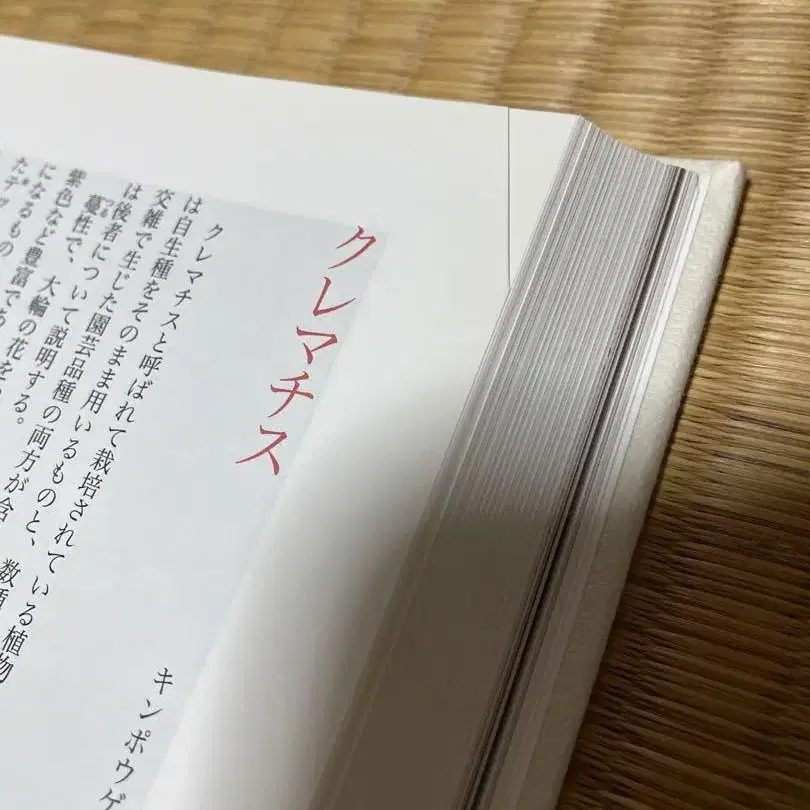 クレマチス
キンポウゲ
クレマチスと呼ばれて栽培されている植物
は自生種をそのまま用いるものと、数種
交雑で生じた園芸品種の両方が含
は後者について説明する。
蔓性で、大輪の花を
紫色など豊富であ
になるもの